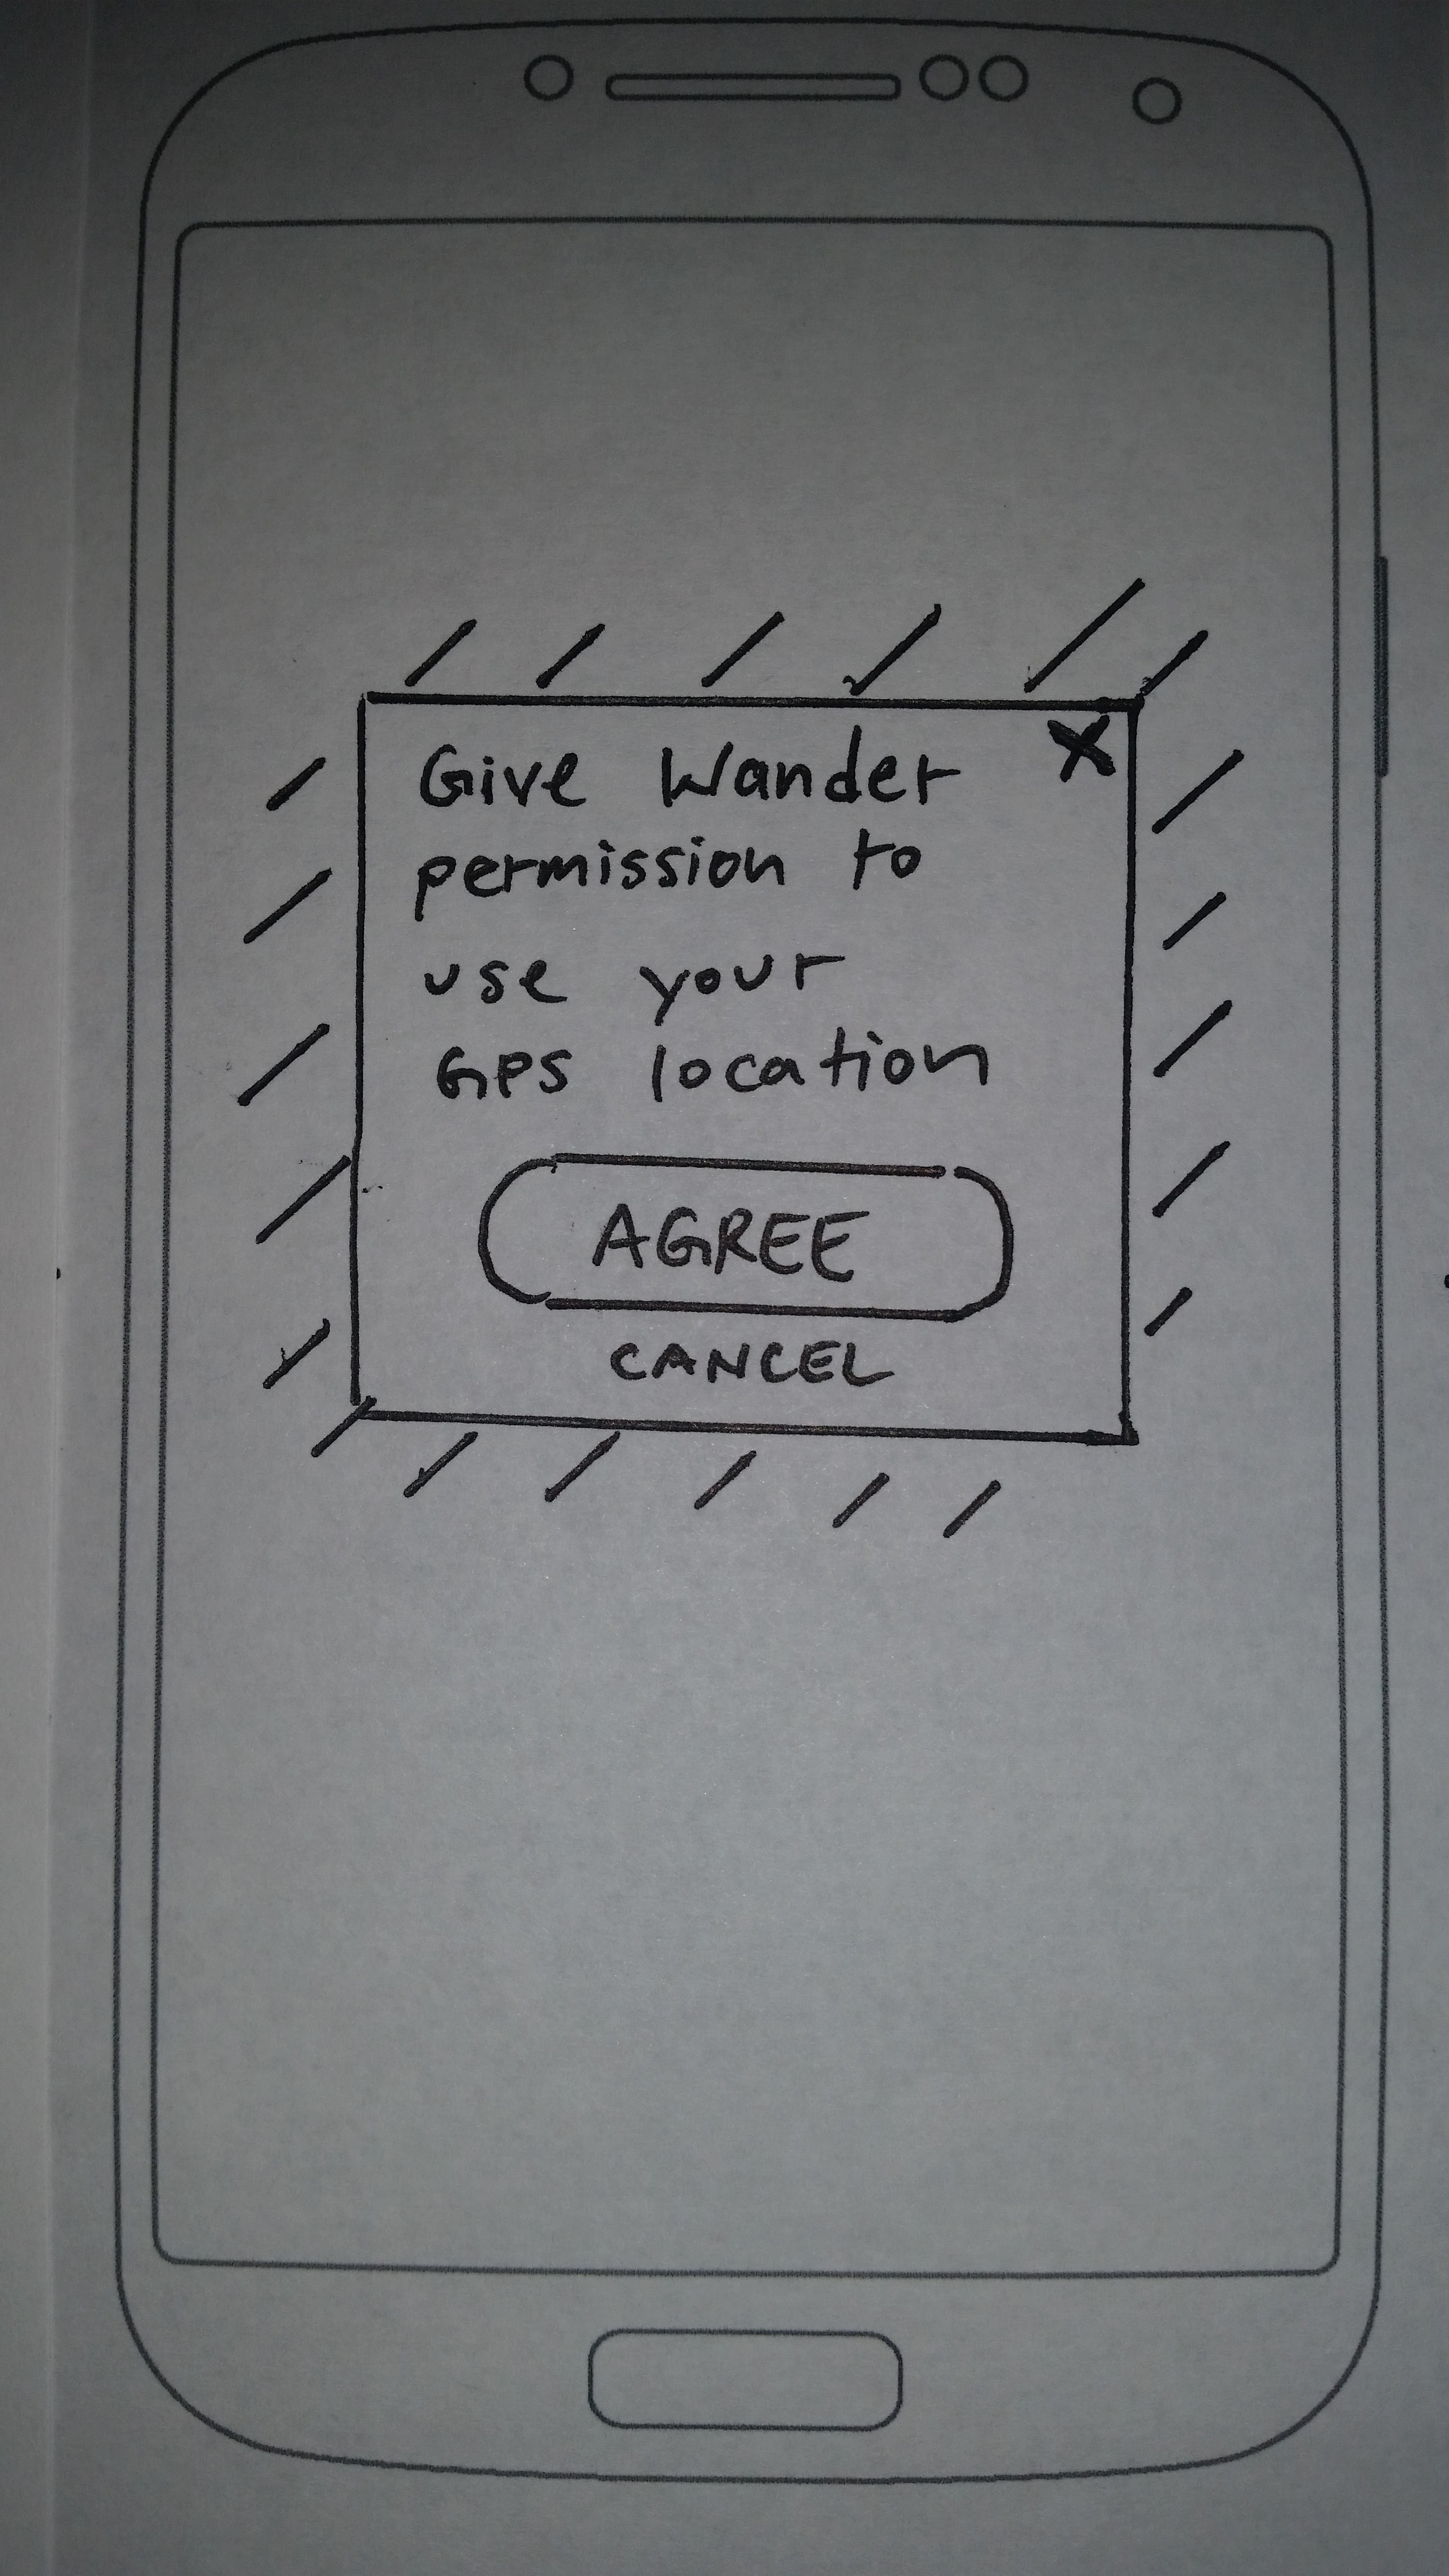 Give Wander X
permission to
use your
GPS location
AGREE
CANCEL